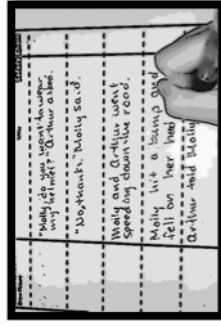 Safety (Chain)
Draw Picture
Write
"Molly, do you want to wear
my helmet?" Arthur asked.
"No, thanks." Molly said.
Molly and Arthur went
speeding down the road.
Molly hit a bump and
fell on her head
Arthur told Molly